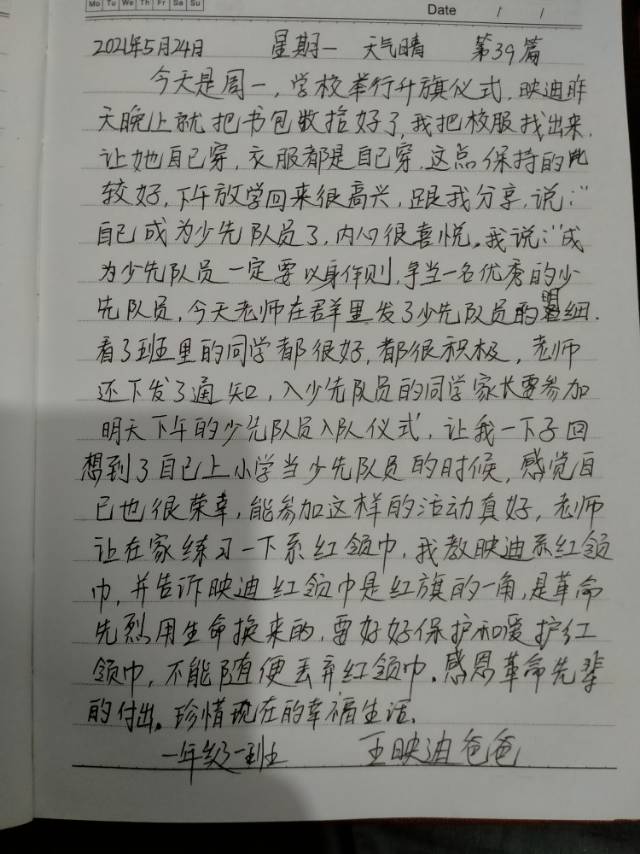 Mo Tu We Th Fr Sa Su
Date / /
2021年5月24日 星期一 天气晴 第39篇
今天是周一，学校举行升旗仪式，映迪昨
天晚上就把书包收拾好了，我把校服找出来，
让她自己穿，衣服都是自己穿，这点保持的比
较好，下午放学回来很高兴，跟我分享，说："
自己成为少先队员了，内心很喜悦。我说："成
为少先队员一定要以身作则，争当一名优秀的少
先队员，今天老师在群里发了少先队员的明细，
看了班里的同学都很好，都很积极，老师
还下发了通知，入少先队员的同学家长要参加
明天下午的少先队员入队仪式，让我一下子回
想到了自己上小学当少先队员的时候，感觉自
己也很荣幸，能参加这样的活动真好，老师
让在家练习一下系红领巾，我教映迪系红领
巾，并告诉映迪红领巾是红旗的一角，是革命
先烈用生命换来的，要好好保护和爱护红
领巾，不能随便丢弃红领巾。感恩革命先辈
的付出。珍惜现在的幸福生活。
一年级一班 王映迪爸爸